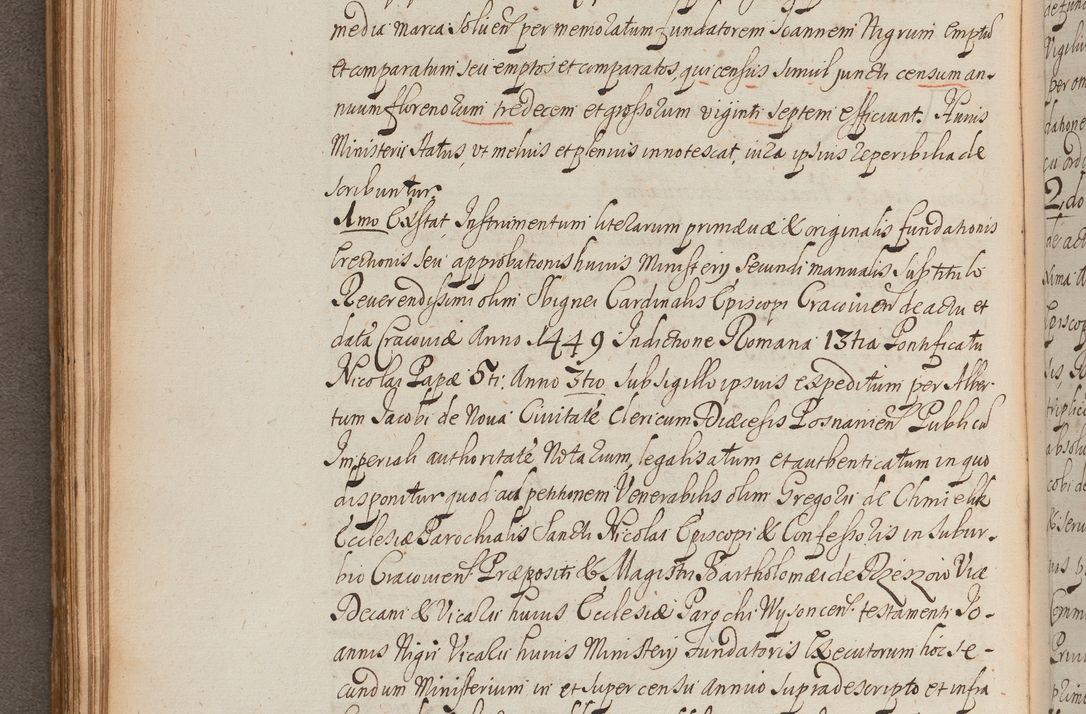 media marca solueñ per memoratum fundatorem Joannem Nigrum emptū
et comparatum seu emptos et comparatos, qui census simul juncti censum an-
nuum florenorum tredecem et grossorum viginti septem efficiunt. Hunis
Ministerii status, ut melius et plenius innotescat, iura ipsius reperibilia de
scribuntur
1mo Exstat Instrumentum literarum primævæ & originalis fundationis
Erectionis seu approbationis huius Ministerij Secundi manualis sub titulo
Reverendissimi olim Sbignei Cardinalis Episcopi Cracovień de actu et
data Cracoviæ Anno 1449 Indictione Romana 13tia Pontificatu
Nicolai Papæ 5ti. Anno 3tio sub sigillo ipsius expeditum per Alber-
tum Jacobi de Nova Civitate Clericum Diæcesis Posnanień Publicū
Imperiali authoritate Notarium, legalisatum et authenticatum in quo
disponitur quod ad petitionem Venerabilis olim Gregorii de Chmielik
Ecclesiæ Parochialis Sancti Nicolai Episcopi & Confessoris in subur-
bio Cracovień Præpositi & Magistri Bartholomæi de Rzeszow Viæ
Decani & Vicarii huius Ecclesiæ Parochi Wysoceń testamenti Jo-
annis Nigri Vicarii huius Ministerij Fundatoris Executorum hoc se-
cundum Ministerium in et super censu Annuo supradescripto et infra